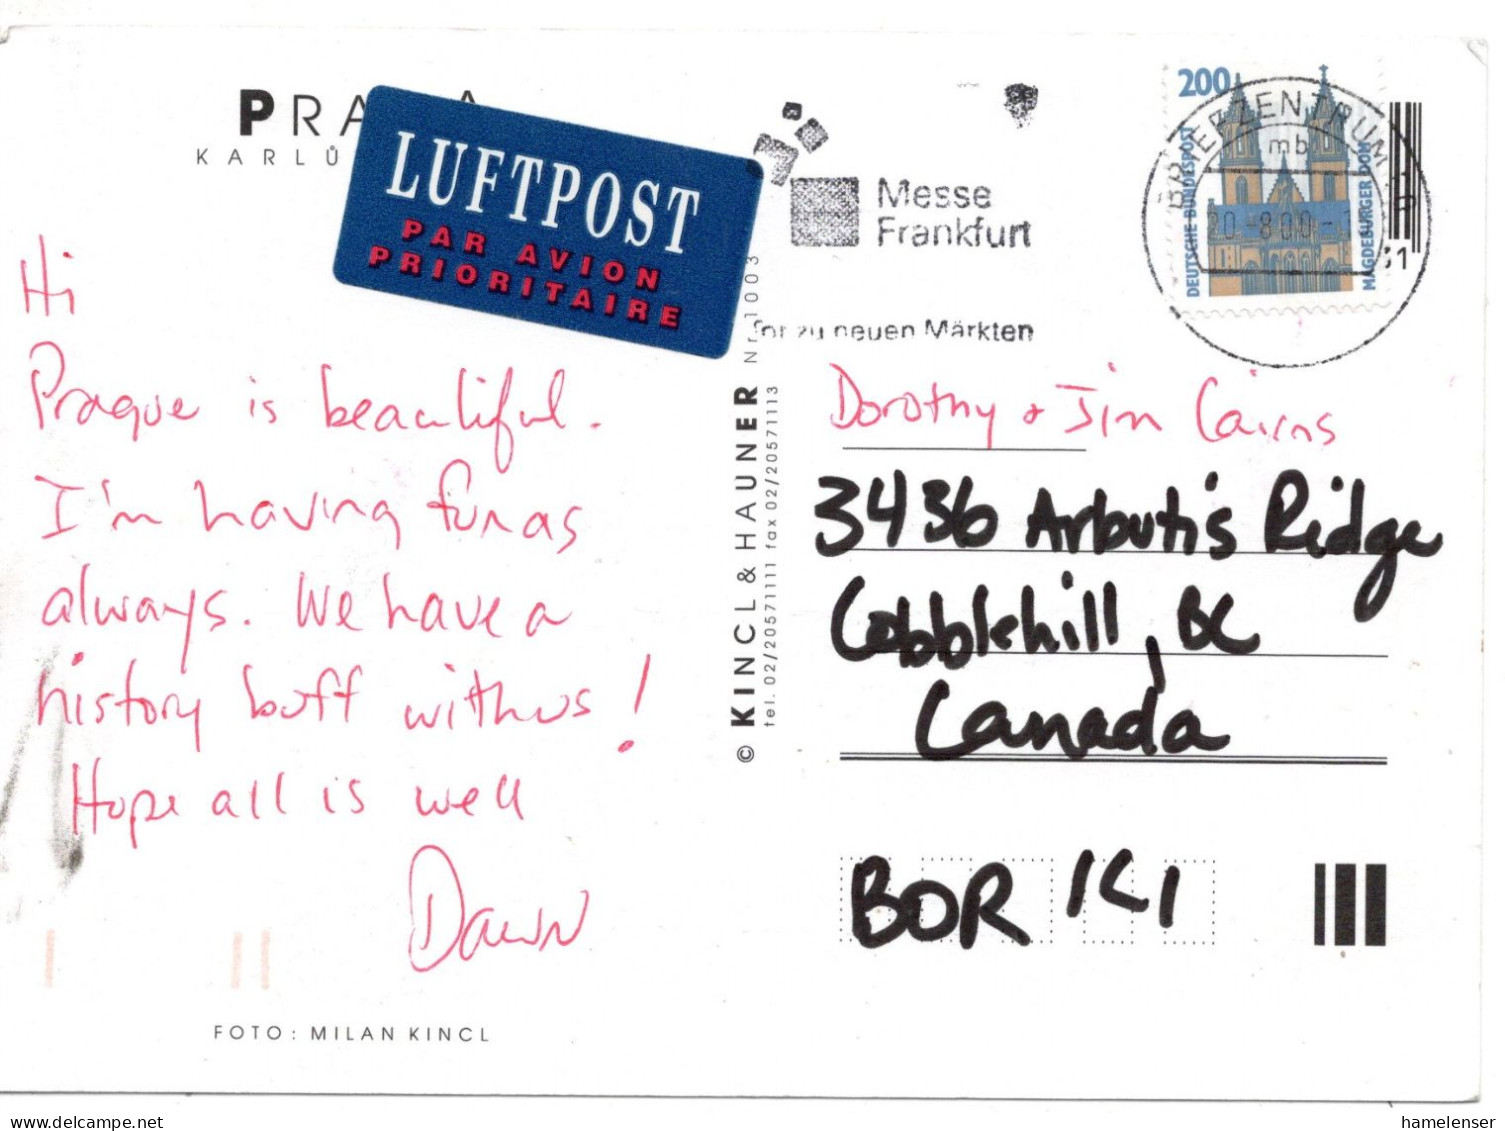 PRA
KARLŮ
LUFTPOST
PAR AVION
PRIORITAIRE
Messe
Frankfurt
zu neuen Märkten
200
DEUTSCHE BUNDESPOST
MAGDEBURGER DOM
BRIEFZENTRUM
mb
20.-8.00-
51
Hi
Prague is beautiful.
I'm having fun as
always. We have a
history buff with us!
Hope all is well
Dawn
FOTO: MILAN KINCL
© KINCL & HAUNER Nr. 1003
tel. 02/20571111 fax 02/20571113
Dorothy + Jim Cairns
3436 Arbutis Ridge
Cobblehill, BC
Canada
BOR 1K1
hamelenser